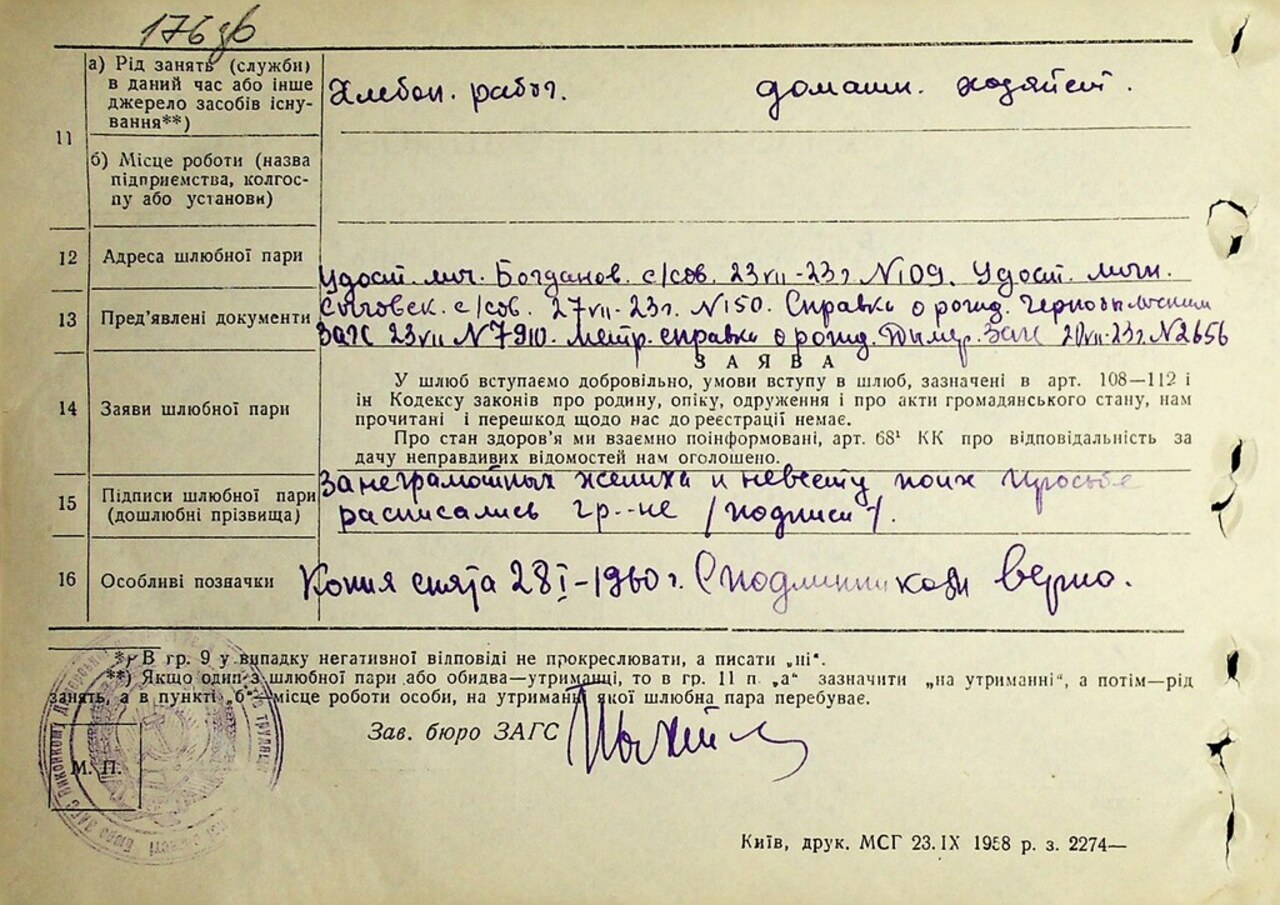 176 зв
а) Рід занять (служби)
в даний час або інше
джерело засобів існу-
вання**)
Хлебоп. работ. домашн. хозяйст.
11
б) Місце роботи (назва
підприємства, колгос-
пу або установи)
12 Адреса шлюбної пари
Удост. лич. Богданов. с/сов. 23 VII-23 г. N 109. Удост. личн.
13 Пред'явлені документи
с/сов. 27 VII-23 г. N 150. Справка о рожд.
ЗАГС 23 VII N 7910. Метр. справка о рожд. Дымер. ЗАГС 20 VII-23 г. N 2656
ЗАЯВА
14 Заяви шлюбної пари
У шлюб вступаємо добровільно, умови вступу в шлюб, зазначені в арт. 108—112 і
ін Кодексу законів про родину, опіку, одруження і про акти громадянського стану, нам
прочитані і перешкод щодо нас до реєстрації немає.
Про стан здоров'я ми взаємно поінформовані, арт. 68¹ КК про відповідальність за
дачу неправдивих відомостей нам оголошено.
15 Підписи шлюбної пари
(дошлюбні прізвища)
За неграмотных жениха и невесту по их просьбе
расписались гр-не /подписи/.
16 Особливі позначки
Копия снята 28 I-1960 г. С подлинником верно.
*) В гр. 9 у випадку негативної відповіді не прокреслювати, а писати „ні“.
**) Якщо один з шлюбної пари або обидва—утриманці, то в гр. 11 п. „а“ зазначити „на утриманні“, а потім—рід
занять, а в пункті „б“—місце роботи особи, на утриманні якої шлюбна пара перебуває.
Зав. бюро ЗАГС
М. П.
Київ, друк. МСГ 23.IX 1958 р. з. 2274—